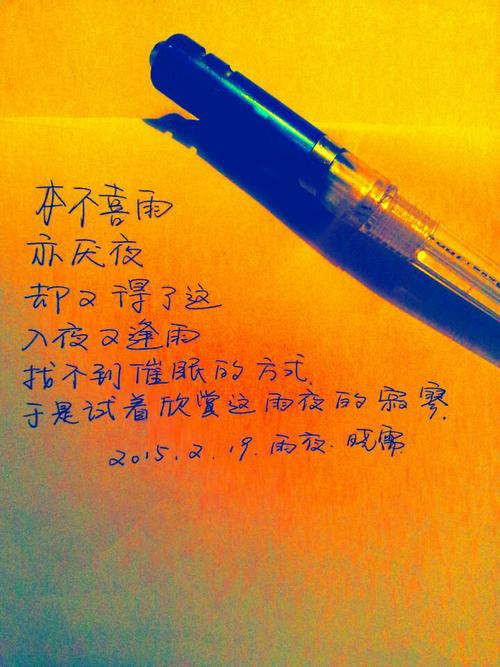 本不喜雨
亦厌夜
却又得了这
入夜又逢雨
找不到催眠的方式.
于是试着欣赏这雨夜的寂寥.
2015.2.19.雨夜.晓霈